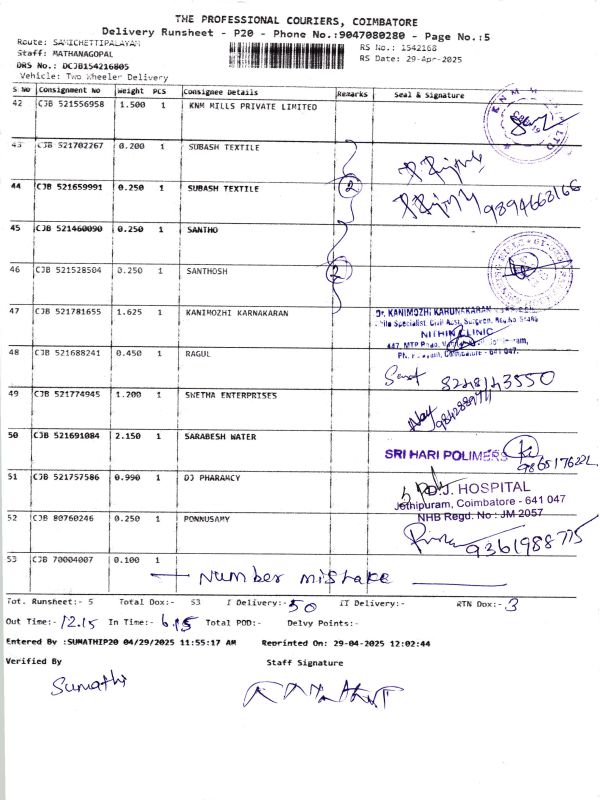 THE PROFESSIONAL COURIERS, COIMBATORE
Delivery Runsheet - P20 - Phone No.:9047080280 - Page No.:5
Route: SAMICHETTIPALAYAM
RS No.: 1542168
Staff: MATHANAGOPAL
RS Date: 29-Apr-2025
DRS No.: DCJB154216805
Vehicle: Two Wheeler Delivery
S No Consignment No Weight PCS Consignee Details Remarks Seal & Signature
42 CJB 521556958 1.500 1 KNM MILLS PRIVATE LIMITED
43 CJB 521702267 0.200 1 SUBASH TEXTILE
44 CJB 521659991 0.250 1 SUBASH TEXTILE 2 9894668166
45 CJB 521460090 0.250 1 SANTHO
46 CJB 521528504 0.250 1 SANTHOSH 2
47 CJB 521781655 1.625 1 KANIMOZHI KARNAKARAN
Dr. KANIMOZHI KARUNAKARAN
NITHIN CLINIC
48 CJB 521688241 0.450 1 RAGUL
8248143550
49 CJB 521774945 1.200 1 SWETHA ENTERPRISES
50 CJB 521691084 2.150 1 SARABESH WATER
SRI HARI POLIMERS
51 CJB 521757586 0.990 1 DJ PHARAMCY
D.J. HOSPITAL
Jothipuram, Coimbatore - 641 047
NHB Regd. No : JM 2057
52 CJB 80760246 0.250 1 PONNUSAMY
9361988775
53 CJB 70004007 0.100 1
Number mistake
Tot. Runsheet:- 5 Total Dox:- 53 I Delivery:- 50 II Delivery:- RTN Dox:- 3
Out Time:- 12.15 In Time:- 6.15 Total POD:- Delvy Points:-
Entered By :SUMATHIP20 04/29/2025 11:55:17 AM Reprinted On: 29-04-2025 12:02:44
Verified By Staff Signature
Sumathi